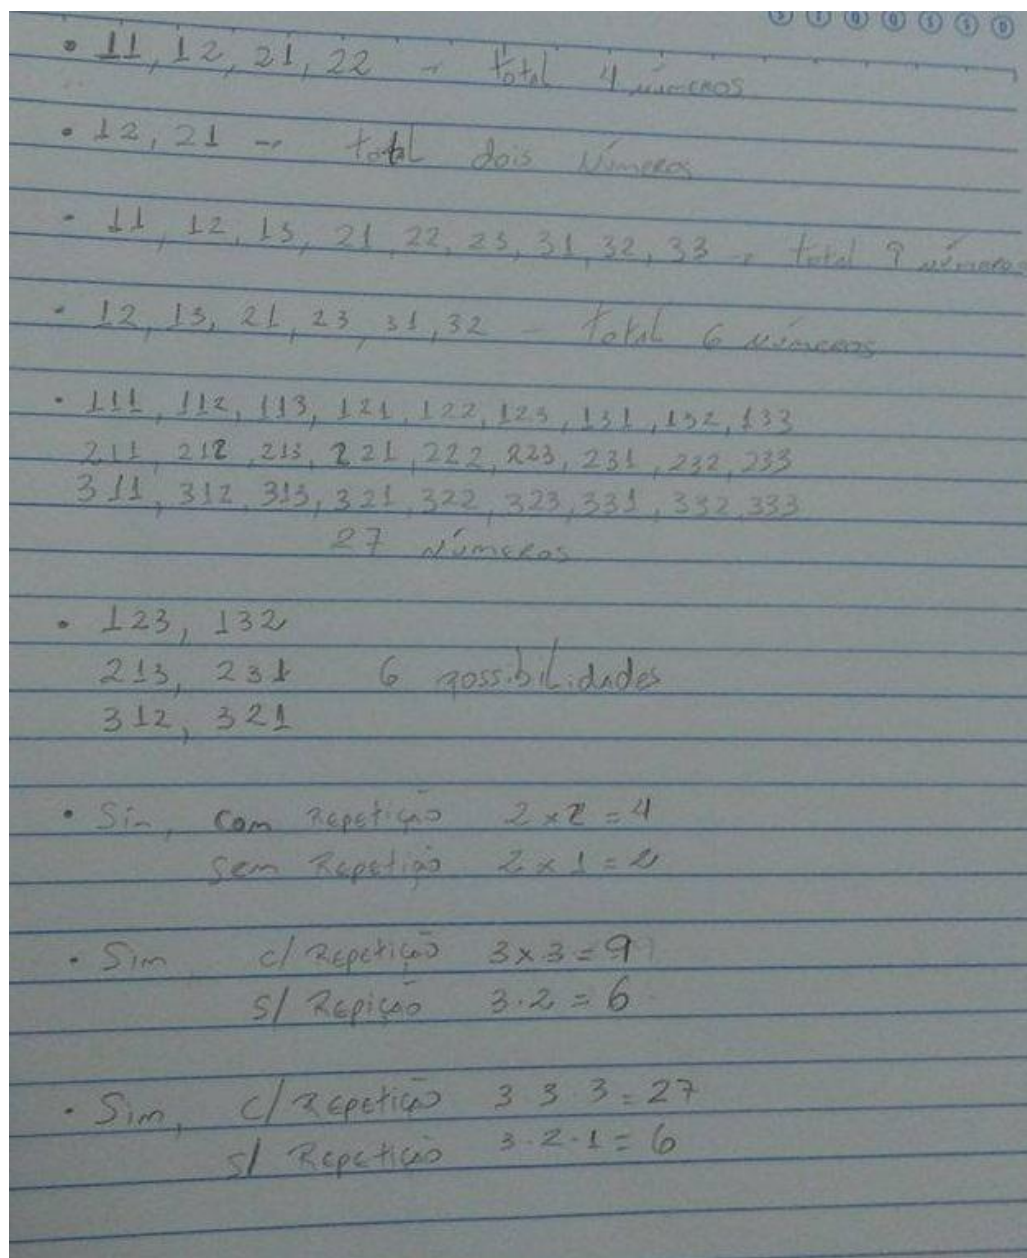 • 11, 12, 21, 22 - total 4 números
• 12, 21 - total dois Números
- 11, 12, 13, 21, 22, 23, 31, 32, 33 - total 9 números
- 12, 13, 21, 23, 31, 32 - total 6 números
• 111, 112, 113, 121, 122, 123, 131, 132, 133
211, 212, 213, 221, 222, 223, 231, 232, 233
311, 312, 313, 321, 322, 323, 331, 332, 333
27 Números
• 123, 132
213, 231 6 possibilidades
312, 321
• Sim, com Repetição 2 x 2 = 4
sem Repetição 2 x 1 = 2
• Sim c/ Repetição 3 x 3 = 9
s/ Repição 3 · 2 = 6
• Sim, c/ Repetição 3 3 · 3 = 27
s/ Repetição 3 · 2 · 1 = 6